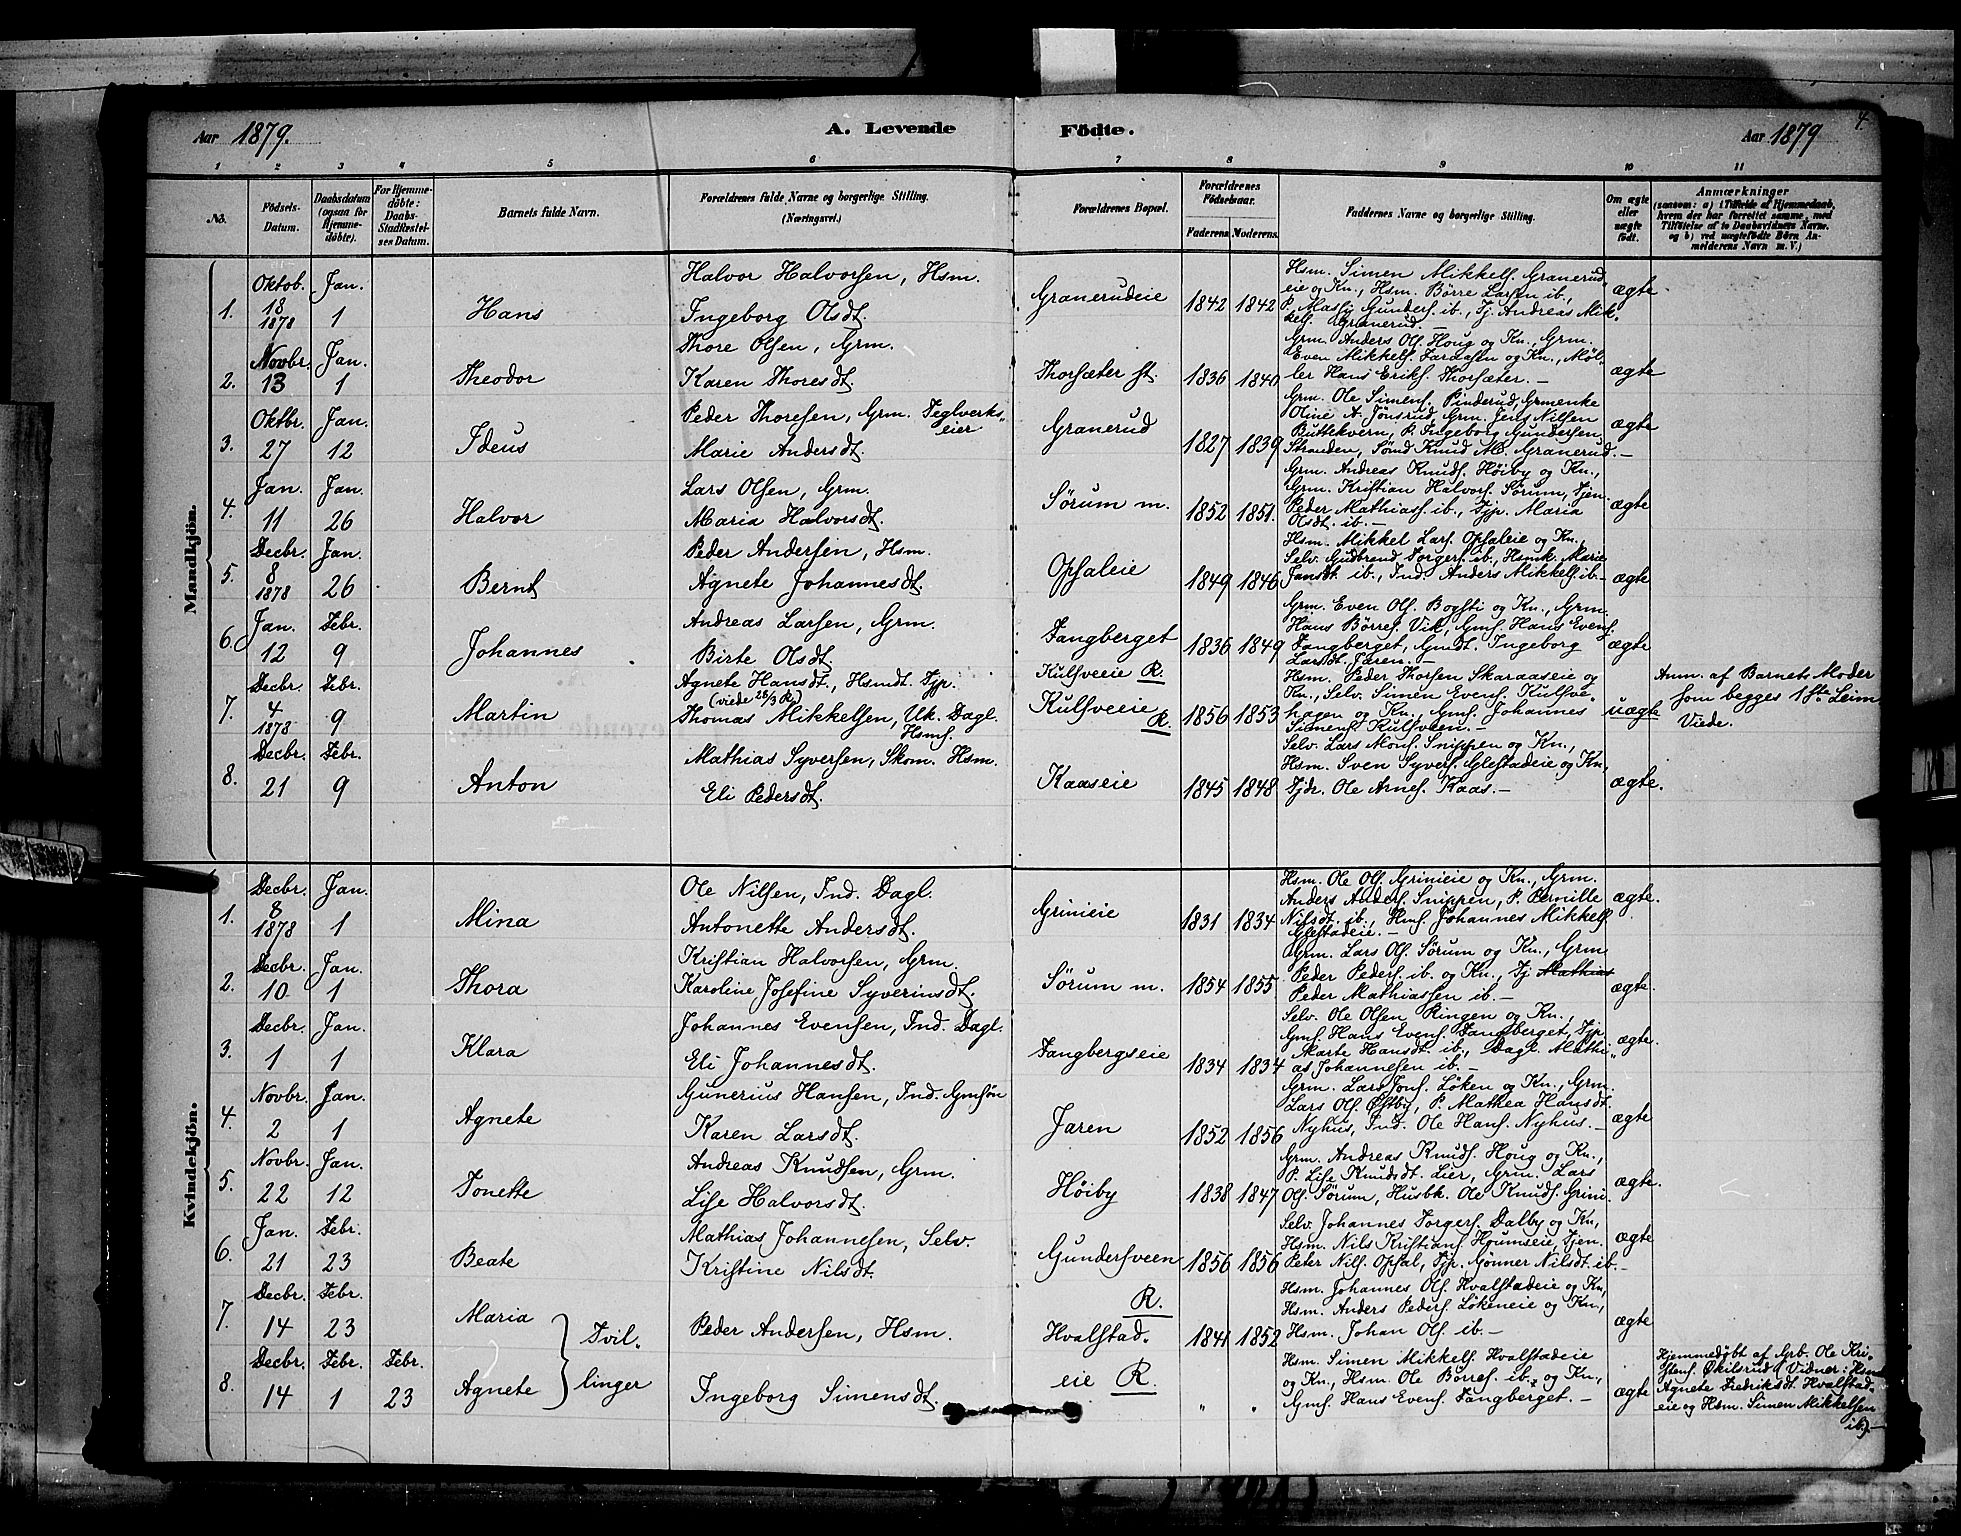 Aar 1879.
A. Levende Födte.
Aar 1879
4
1 2 3 4 5 6 7 8 9 10 11
No.
Födsels-Datum.
Daabsdatum (ogsaa for Hjemme-döbte).
For Hjemme-döbte: Daabs-Stadfæstel-ses Datum.
Barnets fulde Navn.
Forældrenes fulde Navne og borgerlige Stilling. (Næringsvei.)
Forældrenes Bopæl.
Forældrenes Födselsaar.
Faderens Moderens.
Faddernes Navne og borgerlige Stilling.
Om ægte eller uægte födt.
Anmærkninger
(saasom: a) i Tilfælde af Hjemmedaab,
hvem der har forrettet samme, med
Tilföielse af to Daabsvidners Navne.
og b) ved uægtefödte Börn An-
melderens Navn m. V.)
Mandkjön.
1. Oktob. 18 1878 Jan. 1 Hans
Halvor Halvorsen, Hsm.
Ingeborg Olsdt.
Granerudeie 1842 1842
Hsm. Simen Mikkels. Granerud
eie og Kn., Hsm. Börre Larsen ib.,
P. Massy Gunders. ib., Tj. Andreas Mik-
kels. Granerud. –
ægte
2. Novbr. 13 Jan. 1 Theodor
Thore Olsen, Grm.
Karen Thoresdt.
Thorsæter st. 1836 1840
Grm. Anders Ols. Houg og Kn., Grm.
Even Mikkels. Faraasen og Kn., Möl-
ler Hans Eriks. Thorsæter. –
ægte
3. Oktbr. 27 Jan. 12 Ideus
Peder Thoresen, Grm. Teglverks-
eier
Marie Andersdt.
Granerud 1827 1839
Grm. Ole Simens. Pinderud, Grmenke
Oline A. Jönsrud, Grm. Jens Nilsen
Buttekvern, P. Ingeborg Gundersen
Skanden, Sömd Knud M. Granerud. –
ægte
4. Jan. 11 Jan. 26 Halvor
Lars Olsen, Grm.
Maria Halvorsdt.
Sörum m. 1852 1851.
Grm. Andreas Knuds. Höiby og Kn.,
Grm. Kristian Halvors. Sörum, Tjen.
Peder Mathiass. ib., Tjp. Maria
Olsdt. ib. –
ægte
5. Decbr. 8 1878 Jan. 26 Bernt
Peder Andersen, Hsm.
Agnete Johannesdt.
Opsaleie 1849 1846
Hsm. Mikkel Lars. Opsaleie og Kn.,
Selv. Gudbrand Torgers. ib., Hsmk. Marie
Jansdt. ib., Ind. Anders Mikkels. ib. –
ægte
6. Jan. 12 Febr. 9 Johannes
Andreas Larsen, Grm.
Birte Olsdt.
Fangberget 1836 1849
Grm. Even Ols. Bogsti og Kn., Grm.
Hans Börres. Vik, Gms. Hans Evens.
Fangberget, Gmdt. Ingeborg
Larsdt. Jaren. –
ægte
7. Decbr. 4 1878 Febr. 9 Martin
Agnete Hansdt., Hsmdt. Tjp.
(viede 28/3 R.)
Thomas Mikkelsen, Uk. Dagl.
Hsms.
Kulsveeie R.
Kulsveeie R. 1856 1853
Hsm. Peder Thorsen Skaraaseie og
Kn., Selv. Simen Evens. Kulsve-
hagen og Kn., Gms. Johannes
Simens. Kulsveen. –
uægte
Anm. af Barnets Moder
som begges 1ste Leim.
Viede.
8. Decbr. 21 Febr. 9 Anton
Mathias Syversen, Skom. Hsm.
Eli Pedersdt.
Kaaseie 1845 1848
Selv. Lars Mons. Snippen og Kn.,
Hsm. Sven Syvers. Glestadeie og Kn.,
Tjdr. Ole Arnes. Kaas. –
ægte.
Kvindekjön.
1. Decbr. 8 1878 Jan. 1 Mina
Ole Nilsen, Ind. Dagl.
Antonette Andersdt.
Grinieie 1831 1834
Hsm. Ole Ols. Grinieie og Kn., Grm.
Anders Anders. Snippen, P. Pernille
Nilsdt. ib., Hms. Johannes Mikkels.
Glestadeie. –
ægte.
2. Decbr. 10 Jan. 1 Thora
Kristian Halvorsen, Grm.
Karoline Josefine Syverinsdt.
Sörum m. 1854 1855
Grm. Lars Ols. Sörum og Kn., Grm
Peder Peders. ib. og Kn., Tj Mathias
Peder Mathiassen ib. –
ægte.
3. Decbr. 1 Jan. 1 Klara
Johannes Evensen, Ind. Dagl.
Eli Johannesdt.
Fangbergseie 1834 1834
Selv. Ole Olsen Ringen og Kn.,
Gms. Hans Evens. Fangberget, Tjp.
Marte Hansdt. ib., Dagl. Mathi-
as Johannesen ib. –
ægte.
4. Novbr. 2 Jan. 1 Agnete
Gunerius Hansen, Ind. Gmsön
Karen Larsdt.
Jaren 1852 1856
Grm. Lars Jons. Löken og Kn., Grm.
Lars Ols. Östby, P. Mathea Hansdt.
Nyhus, Ind. Ole Hans. Nyhus. –
ægte
5. Novbr. 22 Jan. 12 Tonette
Andreas Knudsen, Grm.
Lise Halvorsdt.
Höiby 1838 1847
Grm. Andreas Knuds. Houg og Kn.,
P. Lise Knudsdt. Lier, Grm. Lars
Ols. Sörum, Husbk. Ole Knuds. Grini.
ægte.
6. Jan. 21 Febr. 23 Beate
Mathias Johannesen, Selv.
Kristine Nilsdt.
Gundersveen R. 1856 1856
Selv. Johannes Torgers. Dalby og Kn,
Hsm. Nils Kristians. Houmseie, Tjen.
Peter Nils. Opsal, Tjp. Gönner Nilsdt. ib. –
ægte
7. Decbr. 14 Febr. 23 Maria
8. Decbr. 14 Febr. 1 Febr. 23 Agnete
Tvil-
linger
Peder Andersen, Hsm.
Ingeborg Simensdt.
Hvalstad-
eie R.
1841 1852
Hsm. Johannes Ols. Hvalstadeie og Kn,
Hsm. Anders Peders. Lökeneie og Kn.,
Hsm. Johan Ols. ib. –
ægte
" "
Hsm. Simen Mikkels. Hvalstadeie
og Kn., Hsm. Ole Börres. ib., og Kn,
Gms. Hans Evens. Fangberget. –
ægte
Hjemmedöbt af Grb. Ole Kri-
stens. Ökilsrud (Vidner: Hsm
Agnete Fredriksdt. Hvalstad-
eie og Hsm. Simen Mikkelsen
ib.). –